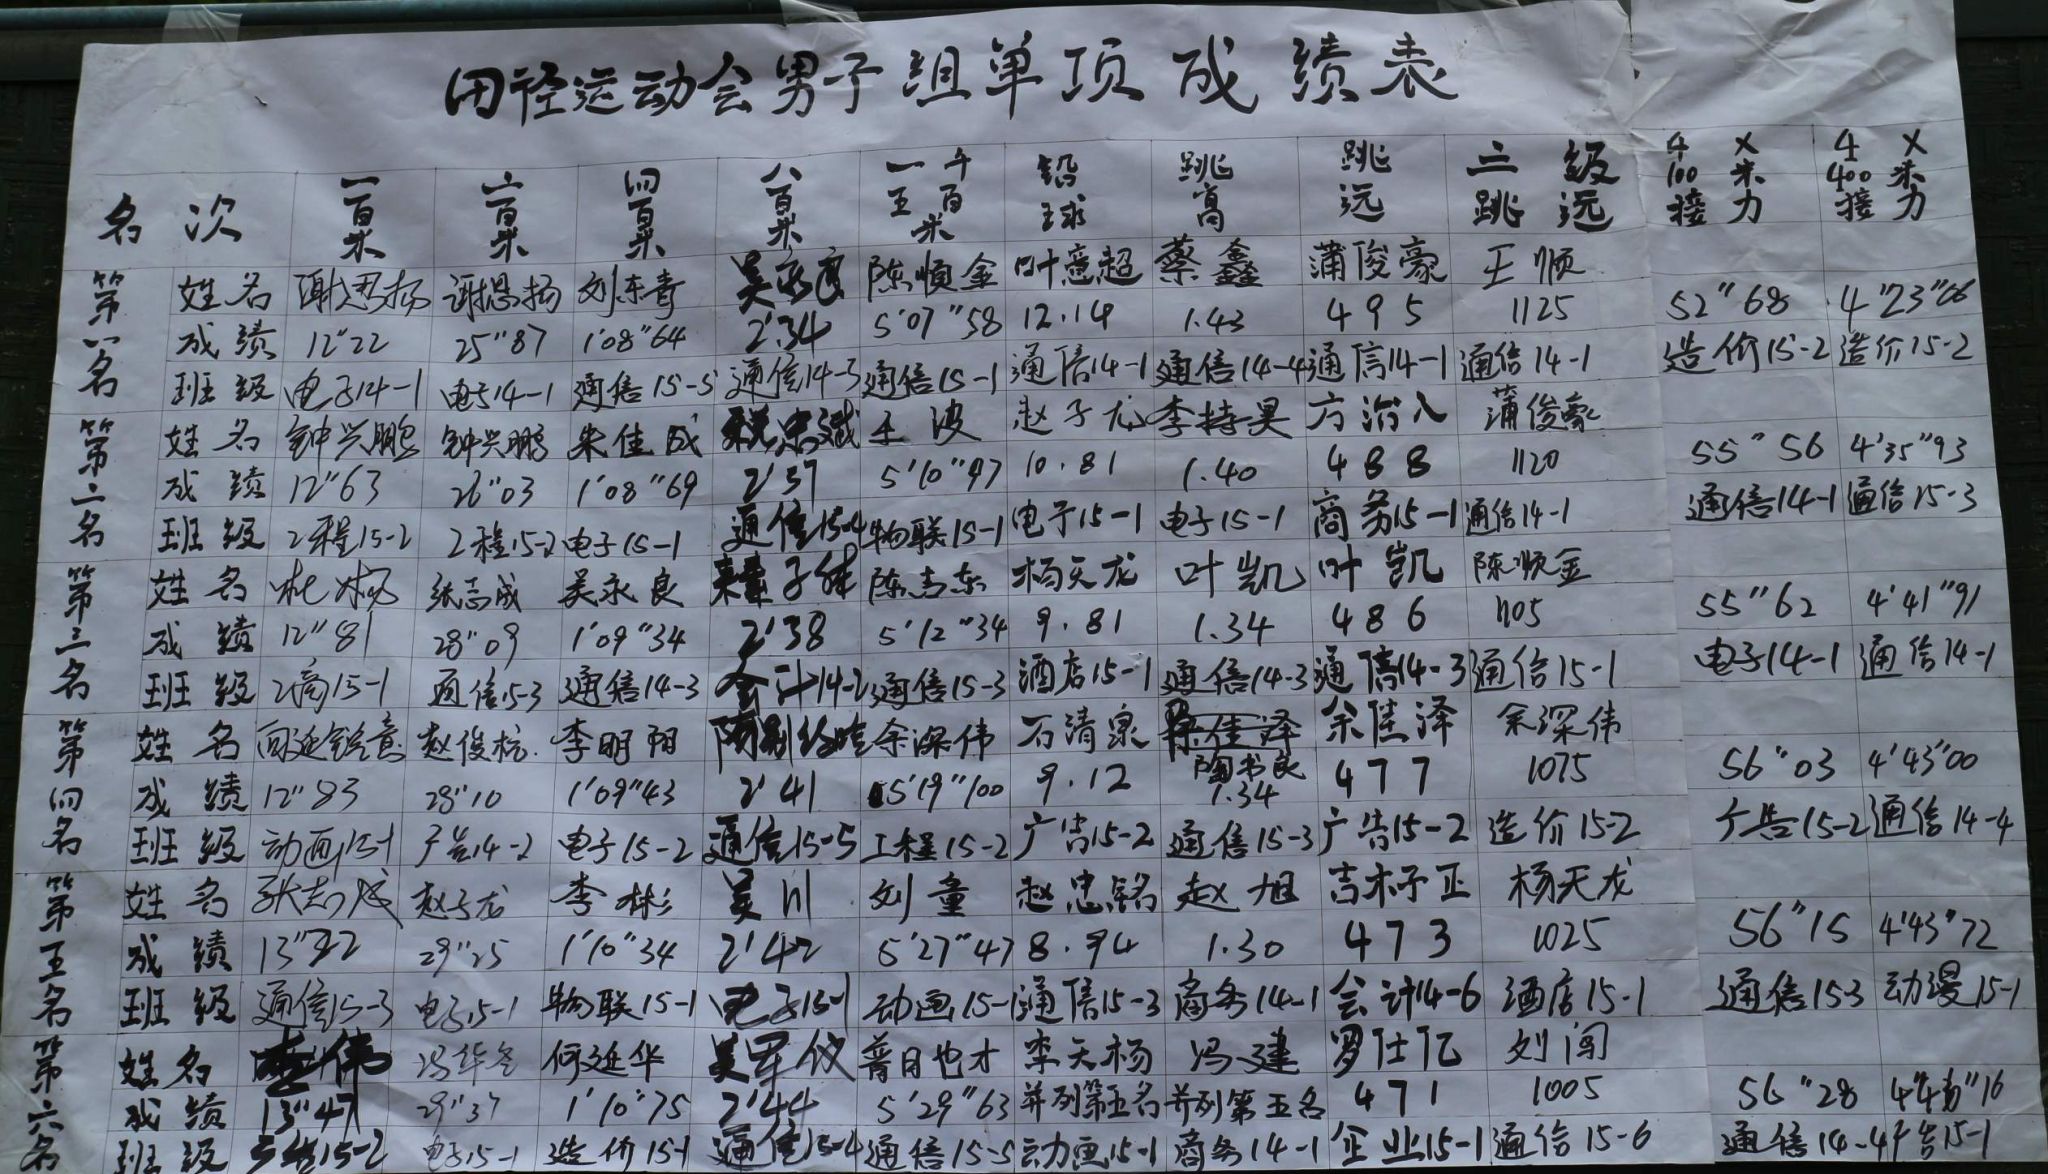 田径运动会男子组单项成绩表
名次 一百米 二百米 四百米 八百米 一千五百米 铅球 跳高 跳远 三级跳远 4×100米接力 4×400米接力
第一名
姓名 谢思扬 谢思扬 刘东青 吴永良 陈顺金 叶意超 蔡鑫 蒲俊豪 王顺
成绩 12"22 25"87 1'08"64 2'34 5'07"58 12.14 1.43 495 1125 52"68 4'23"06
班级 电子14-1 电子14-1 通信15-5 通信14-3 通信15-1 通信14-1 通信14-4 通信14-1 通信14-1 造价15-2 造价15-2
第二名
姓名 钟兴鹏 钟兴鹏 朱佳成 王波 赵子龙 李持昊 方治入 蒲俊豪
成绩 12"63 26"03 1'08"69 2'37 5'10"97 10.81 1.40 488 1120 55"56 4'35"93
班级 工程15-2 工程15-2 电子15-1 通信15-4 物联15-1 电子15-1 电子15-1 商务15-1 通信14-1 通信14-1 通信15-3
第三名
姓名 张志成 吴永良 陈志东 杨天龙 叶凯 叶凯 陈顺金
成绩 12"81 28"09 1'09"34 2'38 5'12"34 9.81 1.34 486 1105 55"62 4'41"91
班级 工商15-1 通信15-3 通信14-3 会计14-2 通信15-3 酒店15-1 通信14-3 通信14-3 通信15-1 电子14-1 通信14-1
第四名
姓名 赵俊杭 李明阳 余深伟 石清泉 陶书良 余佳泽 余深伟
成绩 12"83 28"10 1'09"43 2'41 5'19"100 9.12 1.34 477 1075 56"03 4'43"00
班级 动画15-1 广告14-2 电子15-2 通信15-5 工程15-2 广告15-2 通信15-3 广告15-2 造价15-2 广告15-2 通信14-4
第五名
姓名 张志成 赵子龙 李彬 吴川 刘童 赵忠铭 赵旭 吉木子正 杨天龙
成绩 29"25 1'10"34 2'42 5'27"47 8.94 1.30 473 1025 56"15 4'43"72
班级 通信15-3 电子15-1 物联15-1 电子15-1 动画15-1 通信15-3 商务14-1 会计14-6 酒店15-1 通信153 动漫15-1
第六名
姓名 李伟 冯华冬 何延华 吴军仪 普日也才 李天杨 冯建 罗仕亿 刘闯
成绩 13"47 29"37 1'10"75 2'44 5'29"63 并列第五名 并列第五名 471 1005 56"28
班级 广告15-2 电子15-1 造价15-1 通信15-4 通信15-5 动画15-1 商务14-1 企业15-1 通信15-6 通信14-4 广告15-1